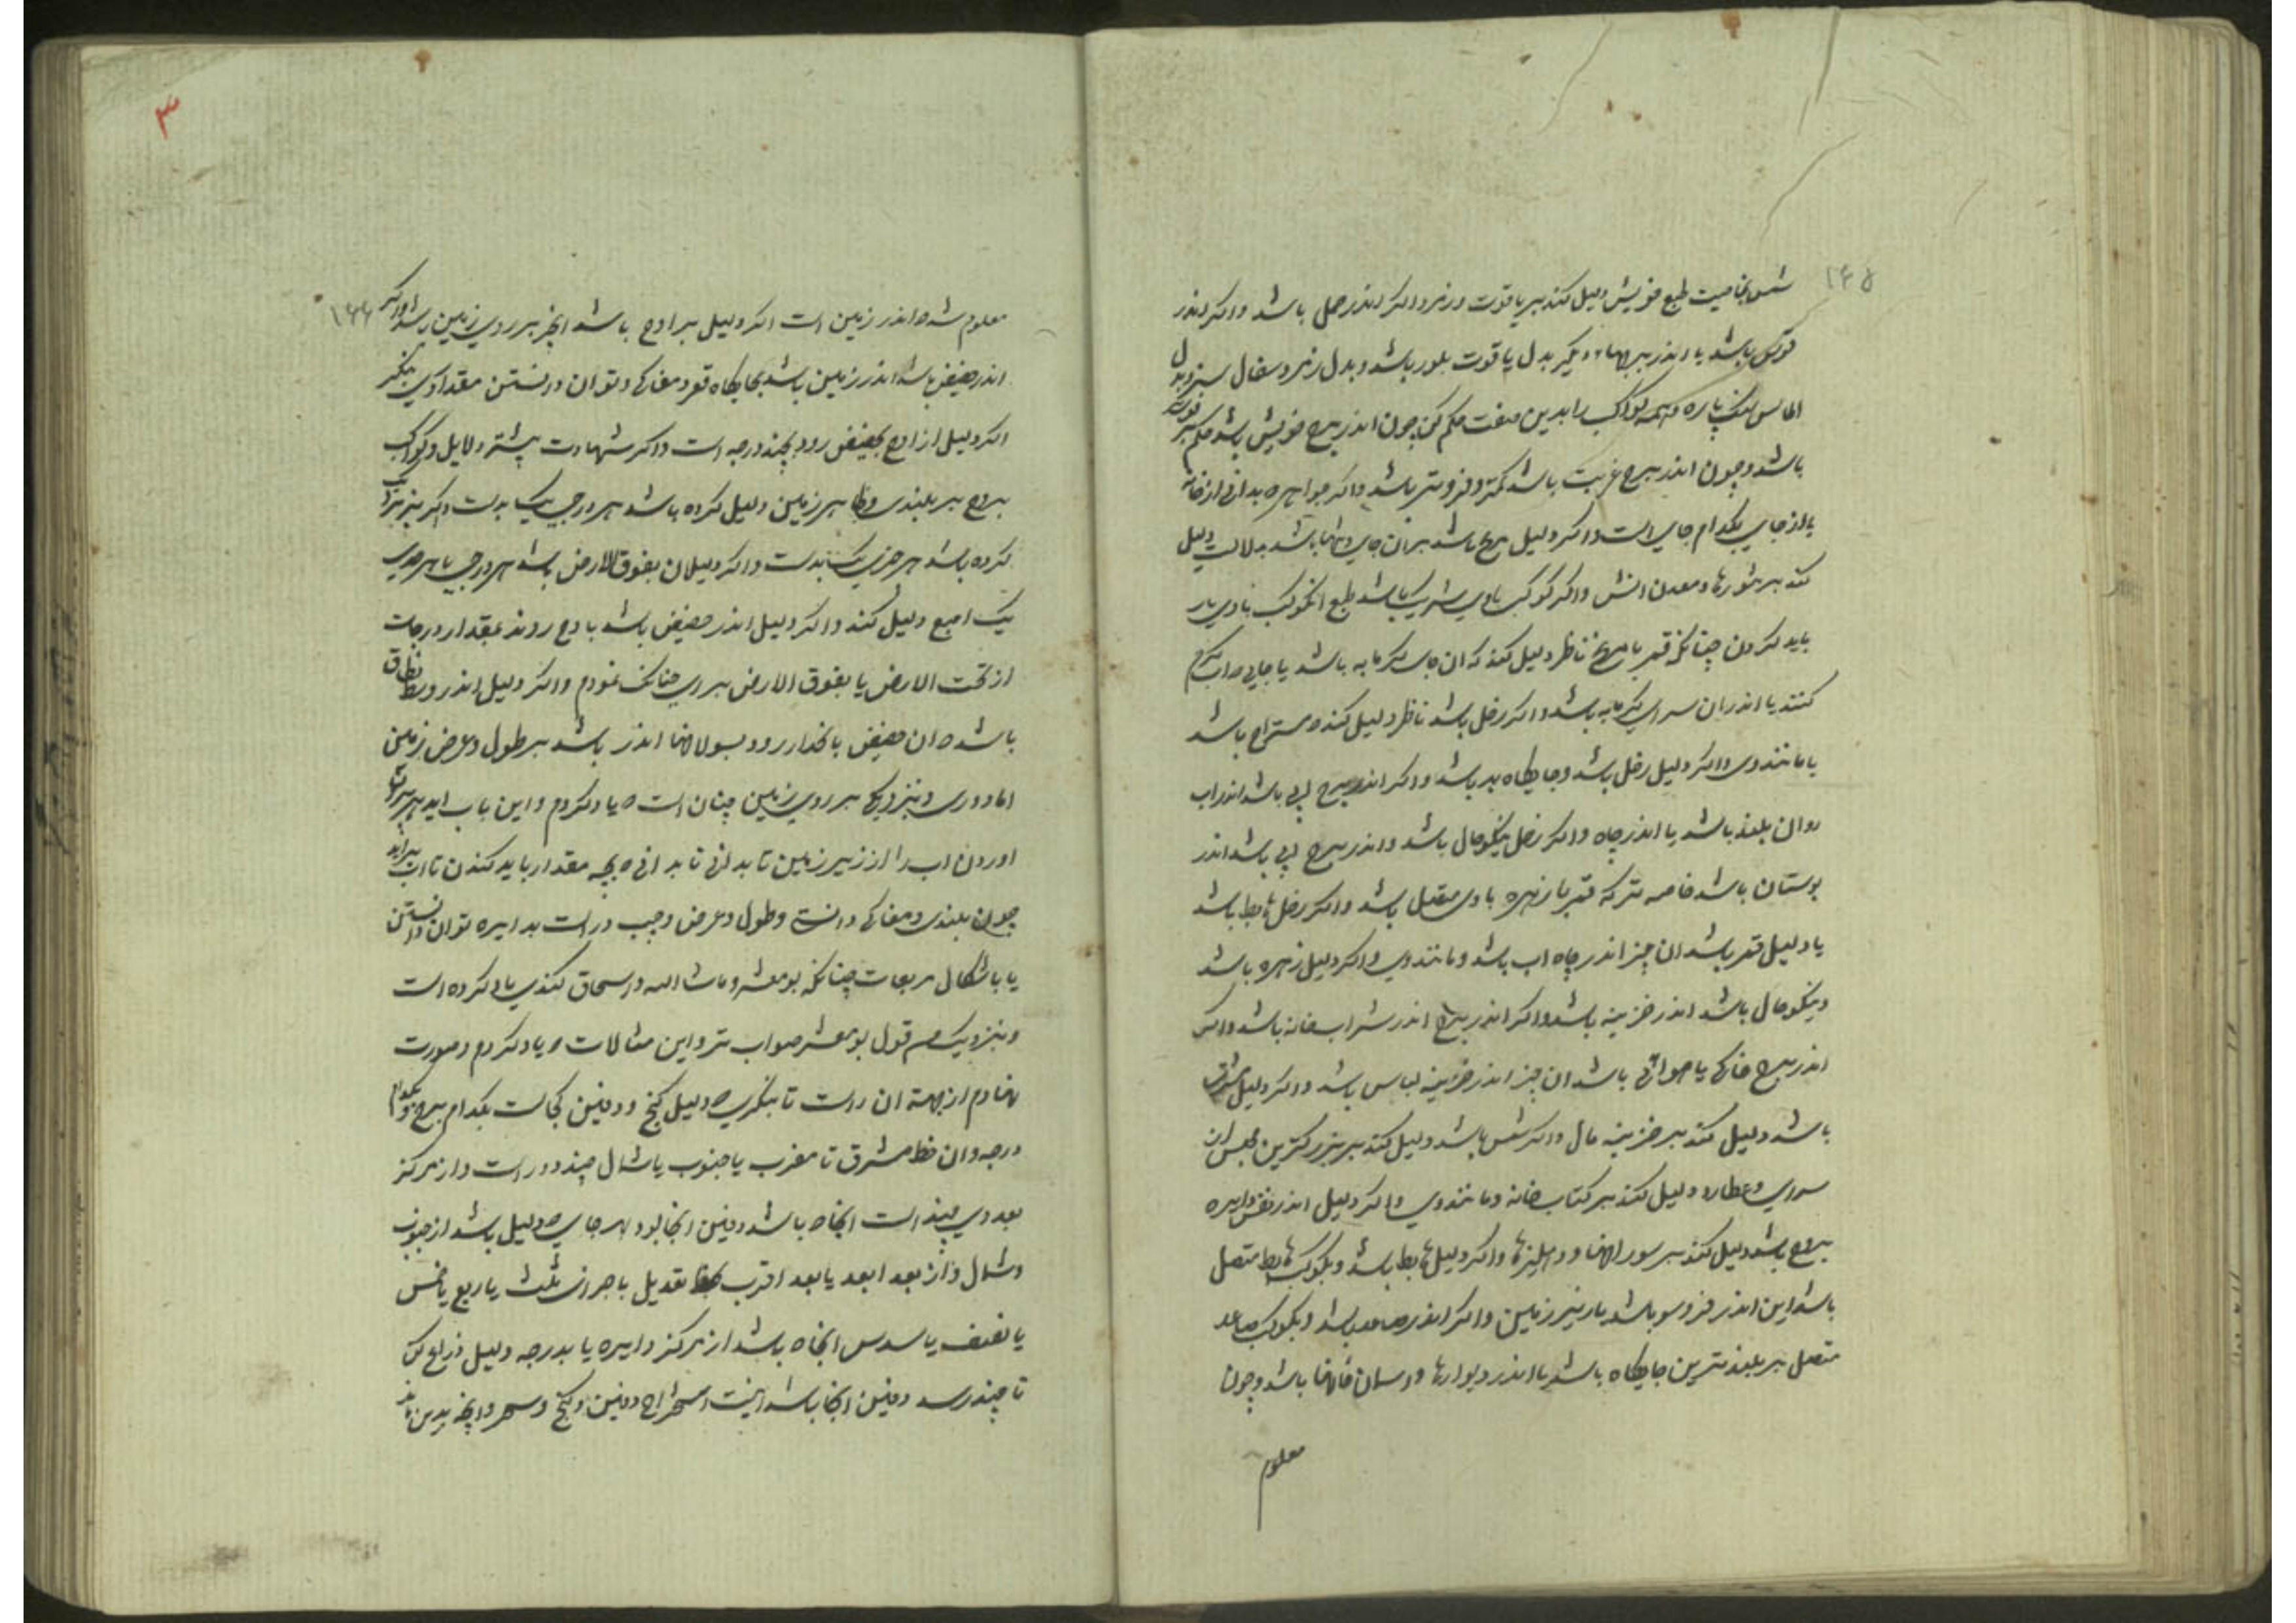 ۱۶۵
شمس بخاصیت طبع خویش دلیل کند بر یاقوت و زمرد اکر اندر حمل باشد و اکر اندر
قوس باشد یا اندر برجهاء دیکر بدل یاقوت بلور باشد و بدل زمرد سفال سبز و بدل
الماس سنک پاره و همه کواکب را بدین صفت حکم کن چون اندر برج خویش باشد حکم بر
باشد و چون اندر برج غربت باشد کمتر و فروتر باشد و اکر خواهی ه بدانی از خانه
یا از جای بکدام جای است و اکر دلیل مریخ باشد بران جای باشد بدلالت دلیل
کند بر تنورها و معدن اتش و اکر کوکب باوی شریک باشد طبع ان کوکب باوی یار
باید کردن چنانکه قمر با مریخ ناظر دلیل کند که ان جای کرمابه باشد یا جایی ه اب کرم
کنند یا اندر ان سرای کرمابه باشد و اکر زحل باشد ناظر دلیل کند ه مستراح باشد
یا مانند وی و اکر دلیل زحل باشد و جایکاه بد باشد و اکر اندر برج ابی باشد اندر اب
روان بلند باشد یا اندر چاه و اکر زحل نیکوحال باشد و اندر برج ابی باشد اندر
بوستان باشد خاصه تر که قمر یا زهره باوی متصل باشد و اکر زحل هابط باشد
یا دلیل قمر باشد ان چیز اندر چاه اب باشد و مانند وی و اکر دلیل زهره باشد
و نیکوحال باشد اندر خزینه باشد و اکر اندر برج اندر شرابخانه باشد و اکر
اندر برج خاکی یا هوائی باشد ان چیز اندر خزینه لباس باشد و اکر دلیل مشتری
باشد دلیل کند بر خزینه مال و اکر شمس باشد دلیل کند بر بزرکترین مجلس ان
سرای و عطارد دلیل کند بر کتاب خانه و مانند وی و اکر دلیل اندر نفس دایره
بروج باشد دلیل کند بر سوراخها و دهلیزها و اکر دلیل هابط باشد و بکوکب هابط متصل
باشد این اندر فروسو باشد یا زیر زمین و اکر اندر صاعد باشد و بکوکب صاعد
متصل بر بلندترین جایکاه باشد یا اندر دیوارها و اسمان خانها باشد و چون
معلوم
۳
۱۶۶
معلوم شد ه اندر زمین است اکر دلیل بر اوج باشد انچیز بر روی زمین باشد و اکر
اندر حضیض باشد اندر زمین باشد بجایکاه قعر و مغاکی و توان دانستن مقدار وی بنکر
اکر دلیل از اوج بحضیض رود بچند درجه است و اکر شهادت بیشتر دلایل و کواکب
بروج بر بلندی و بر زمین دلیل کرده باشد هر درجی یک بدست و اکر
کرده باشد هر جزی یک بدست و اکر دلیلان بفوق الارض باشد هر درجی یا هر جزی
یک اصبع دلیل کند و اکر دلیل اندر حضیض باشد باوج روند بمقدار درجات
از تحت الارض یا بفوق الارض برای چنانک نمودم و اکر دلیل اندر وسط نطاق
باشد ه ان حضیض باکذار رود بسولاخها اندر باشد بر طول و عرض زمین
اما دوری و نزدیکی بر روی زمین چنان است ه یاد کردم و این باب اید
اوردن اب را از زیر زمین تا بدانی تا بدانی ه بچه مقدار باید کندن تا اب براید
چون بلندی و مغاکی دانستی و طول و عرض وجب دراست بدایره توان دانستن
یا باشکال مربعات چنانکه بومعشر و ماشاالله و اسحاق کندی یاد کرده است
و بنزدیک من قول بومعشر صواب تر و این مثالات ه یاد کردم و صورت
نهادم از بهر ان راست تا بنکری ه دلیل کنج و دفین کجاست بکدام برج و بکدام
درجه و ان خط مشرق تا مغرب یا جنوب یا شمال چند دور است و از مرکز
بعد وی چند است انجا ه باشد دفین انجا بود هر جای ه دلیل باشد از جنوب
و شمال و از بعد ابعد یا بعد اقرب تعدیل باجزای ثلث یا ربع یا خمس
یا نصف یا سدس انجا ه باشد از مرکز دایره یا بدرجه دلیل ذراع کن
تا چند رسد دفین انجا باشد اینست استخراج دفین و کنج و سحر و انچه بدین ماند